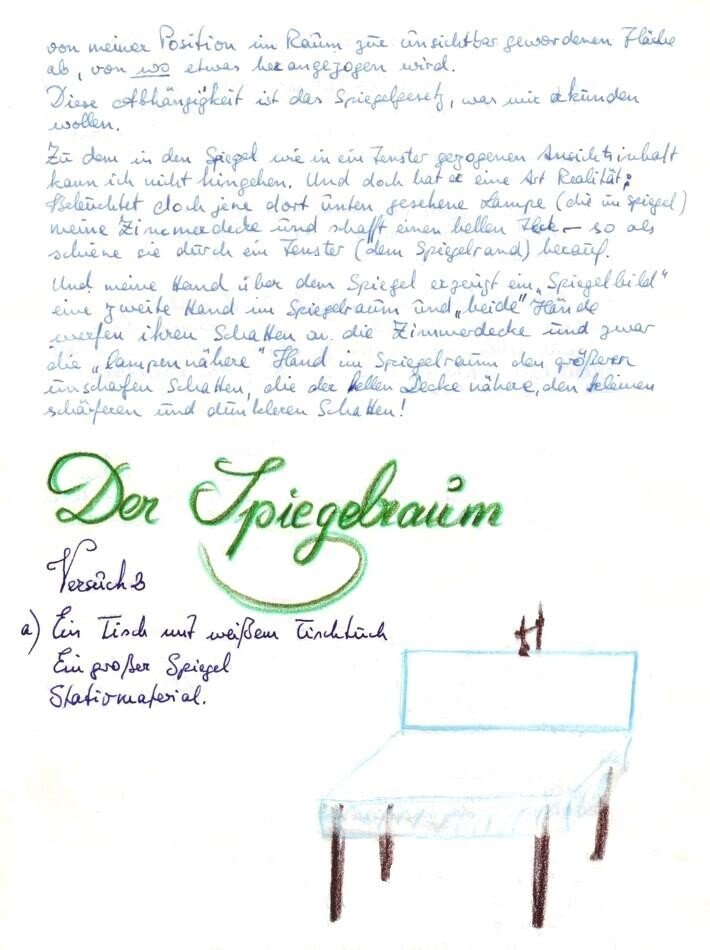 von meiner Position im Raum zur unsichtbar gewordenen Fläche
ab, von wo etwas herangezogen wird.
Diese Abhängigkeit ist das Spiegelgesetz, was wir erkunden
wollen.
Zu dem in den Spiegel wie in ein Fenster gezogenen Ansichtsinhalt
kann ich nicht hingehen. Und doch hat er eine Art Realität;
Beleuchtet doch jene dort unten gesehene Lampe (die im Spiegel)
meine Zimmerdecke und schafft einen hellen Fleck – so als
schiene sie durch ein Fenster (dem Spiegelrand) herauf.
Und meine Hand über dem Spiegel erzeugt ein „Spiegelbild"
eine zweite Hand im Spiegelraum und „beide" Hände
werfen ihren Schatten an die Zimmerdecke und zwar
die „lampennähere" Hand im Spiegelraum den größeren
unscharfen Schatten, die der hellen Decke nähere, den kleinen
schärferen und dunkleren Schatten!
Der Spiegelraum
Versuch
a) Ein Tisch mit weißem Tischtuch
Ein großer Spiegel
Stativmaterial.